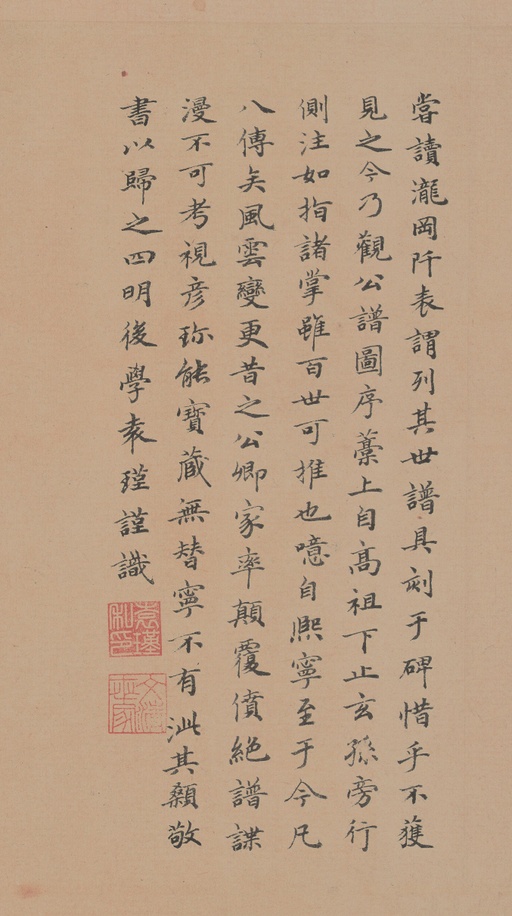 嘗讀瀧岡阡表謂列其世譜具刻于碑惜乎不獲
見之今乃觀公譜圖序藁上自高祖下止玄孫旁行
側注如指諸掌雖百世可推也噫自熈寧至于今凡
八傳矣風雲變更昔之公卿家率顛覆僨絶譜諜
漫不可考視彦珎能寶蔵無替寧不有泚其顙敬
書以歸之四明後學袁瑾謹識
袁瑾
私印